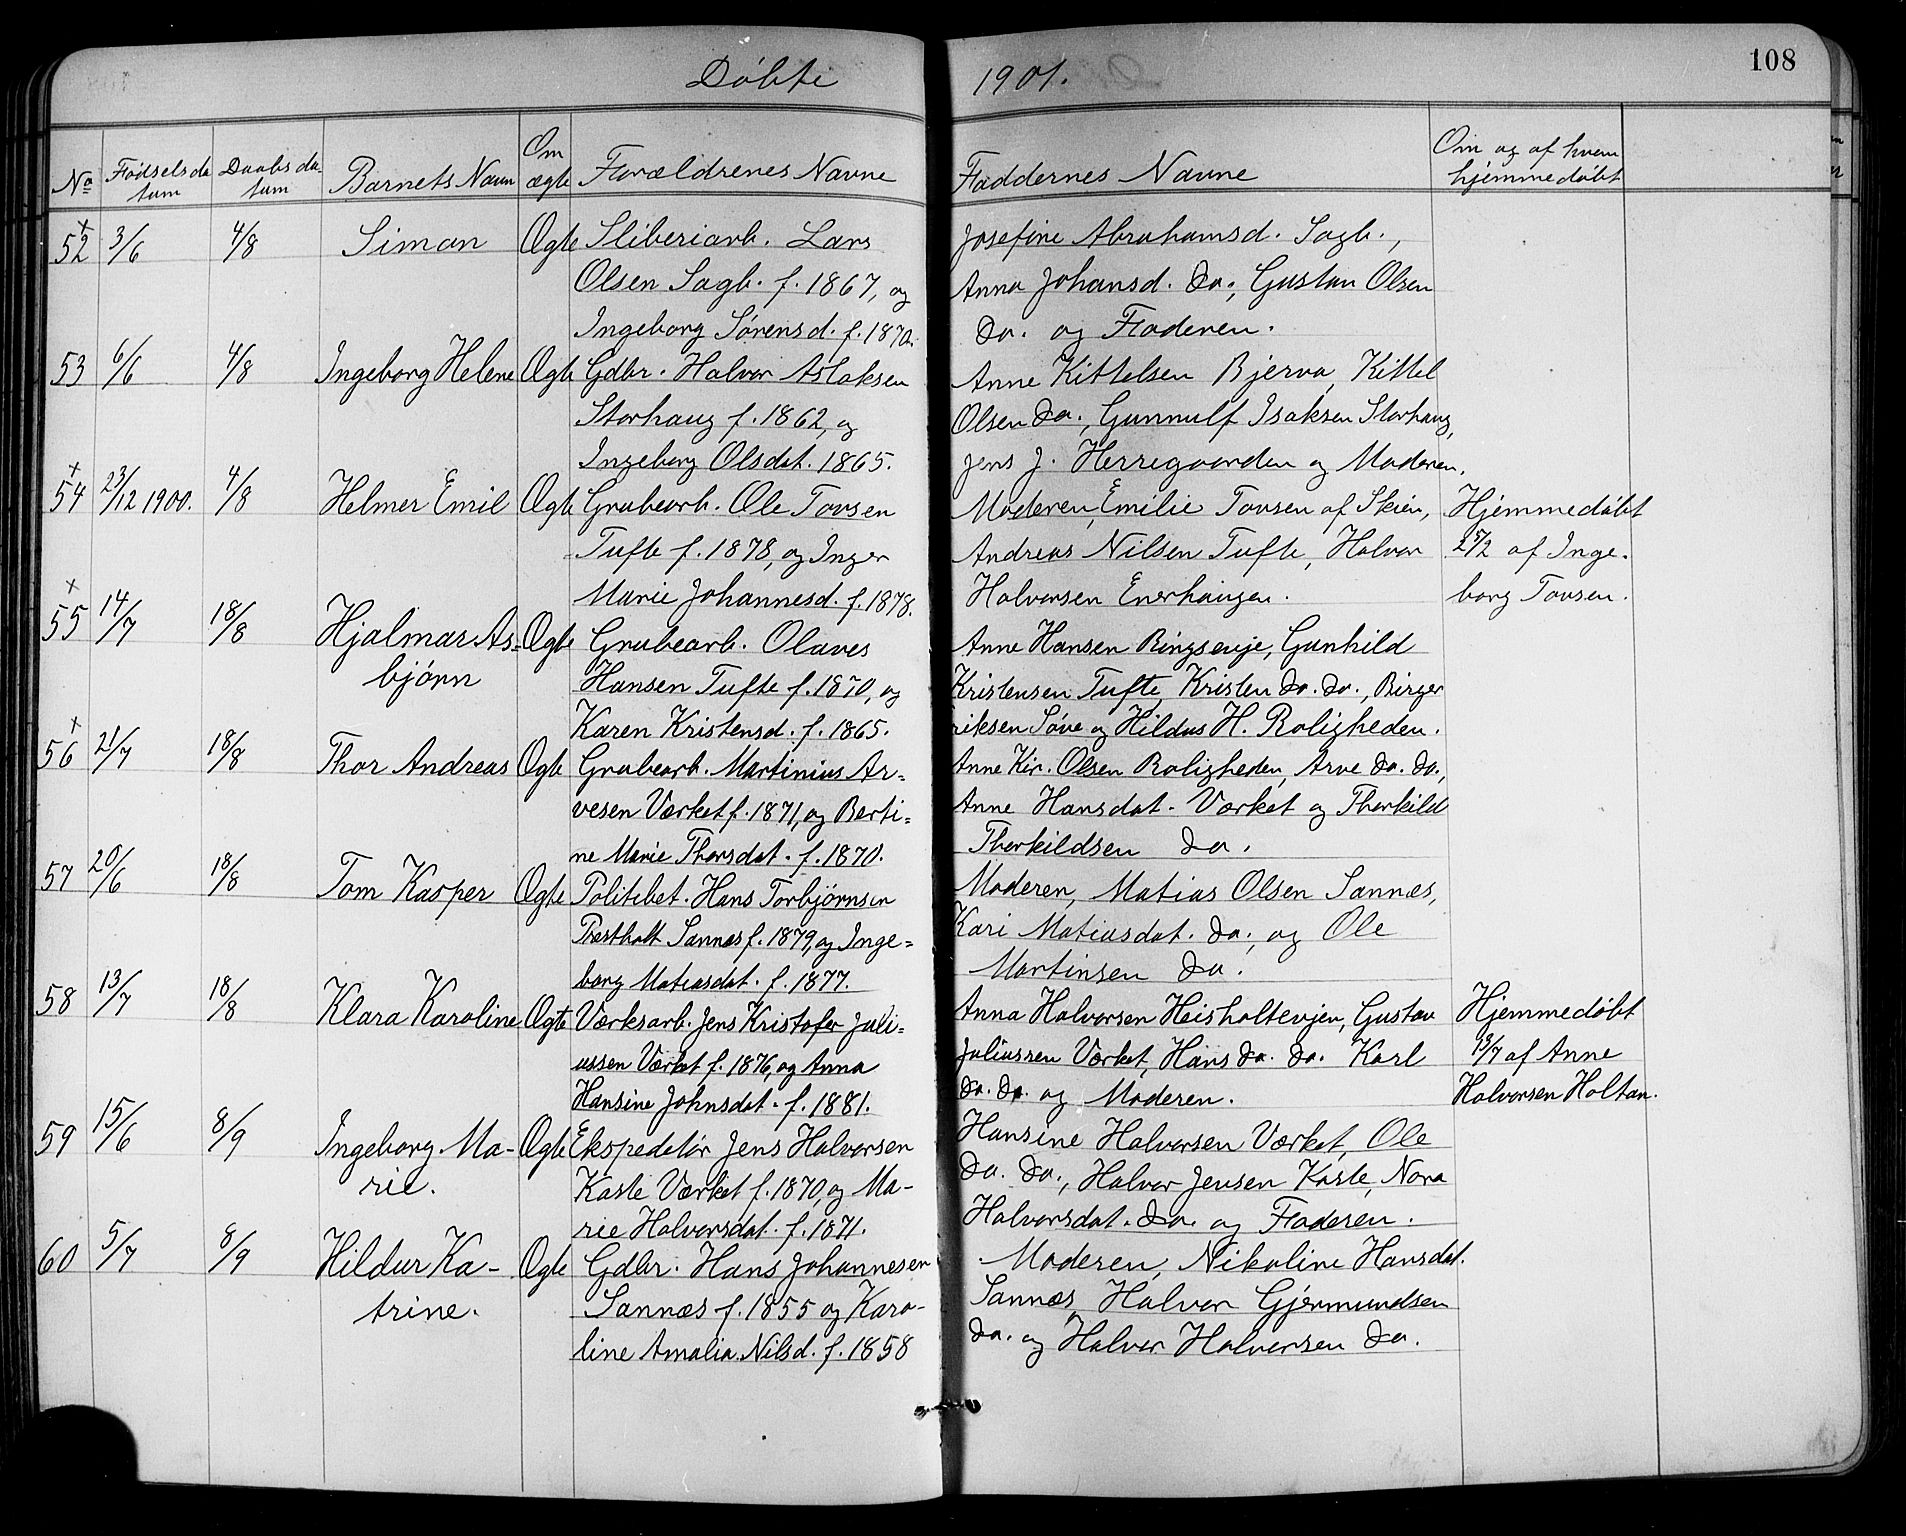 108
Døbte 1901.
No Fødselsda- tum Daabsda- tum Barnets Navn Om ægte Forældrenes Navne Faddernes Navne Om og af hvem hjemmedøbt
52 3/6 4/8 Simon Ægte Sliberiarb. Lars Josefine Abrahamsd. Sagb.,
Olsen Sagb. f. 1867, og Anna Johansd. do., Gustav Olsen
Ingeborg Sørensd. f. 1870. do. og Faderen.
53 6/6 4/8 Ingeborg Helene Ægte Gdbr. Halvor Aslaksen Anne Kittelsen Bjerva, Kittel
Storhaug f. 1862, og Olsen do., Gunnulf Isaksen Storhaug,
Ingeborg Olsdat. 1865. Jens J. Herregaarden og Moderen.
54 23/12 1900. 4/8 Helmer Emil Ægte Grubearb. Ole Tovsen Moderen, Emilie Tovsen af Skien, Hjemmedøbt
Tufte f. 1878, og Inger Andreas Nilsen Tufte, Halvor 25/2 af Inge-
Marie Johannesd. f. 1878. Halvorsen Enerhaugen. borg Tovsen.
55 14/7 18/8 Hjalmar As- Ægte Grubearb. Olaves Anne Hansen Ringsevje, Gunhild
bjørn Hansen Tufte f. 1870, og Kristensen Tufte, Kristen do. do., Birger
Karen Kristensd. f. 1865. riksen Søve og Hildus H. Roligheden.
56 21/7 18/8 Thor Andreas Ægte Grubearb. Martinius Ar- Anne Kir. Olsen Roligheden, Arve do. do.,
vesen Værket f. 1871, og Berti- Anne Hansdat. Værket og Therkild
ne Marie Thorsdat. f. 1870. Therkildsen do.
57 20/6 18/8 Tom Kasper Ægte Politibet. Hans Torbjørnsen Moderen, Matias Olsen Sannæs,
Prestholt Sannæs f. 1879, og Inge- Kari Matiasdat. do., og Ole
borg Matiasdat. f. 1877. Martinsen do.
58 13/7 18/8 Klara Karoline Ægte Værksarb. Jens Kristofer Juli- Anna Halvorsen Heisholtevjen, Gustav Hjemmedøbt
ussen Værket f. 1876, og Anna Juliussen Værket, Hans do. do. Karl 19/7 af Anne
Hansine Johnsdat. f. 1881. do. do. og Moderen. Halvorsen Holtan.
59 15/6 8/9 Ingeborg Ma- Ægte Ekspeditør Jens Halvorsen Hansine Halvorsen Værket, Ole
rie. Kaste Værket f. 1870, og Ma- do. do., Halvor Jensen Kaste, Nora
rie Halvorsdat. f. 1871. Halvorsdat. do. og Faderen.
60 5/7 8/9 Hildur Ka- Ægte Gdbr. Hans Johannesen Moderen, Nikoline Hansdat.
trine. Sannæs f. 1855 og Karo- Sannæs, Halvor Gjermundsen
line Amalia Nilsd. f. 1858 do. og Halvor Halvorsen do.